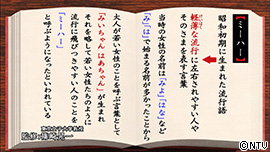 【ミーハー】
昭和初期に生まれた流行語
軽薄な流行に左右されやすい人や
そのさまを表す言葉
当時の女性の名前は「みよ」「はな」など
「み」「は」で始まる名前が多かったことから
大人が若い女性のことを呼ぶ言葉として
「みいちゃん はあちゃん」が生まれ
それを略して若い女性たちのように
流行に飛びつきやすい人のことを
「ミーハー」
と呼ぶようになったといわれている
©NTV